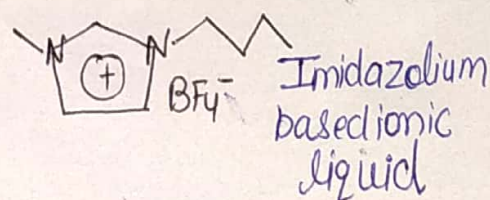 N N
+
BF4⁻
Imidazolium
based ionic
liquid